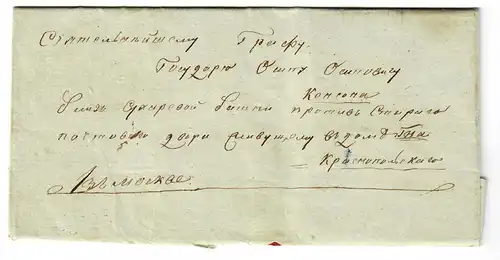 Сіятельнѣйшему Графу.
Государю Осипу Осиповичу
близь Сухаревой башни противъ Стараго
почтоваго двора живущему въ домѣ
Краснопольскаго
Въ Москве.